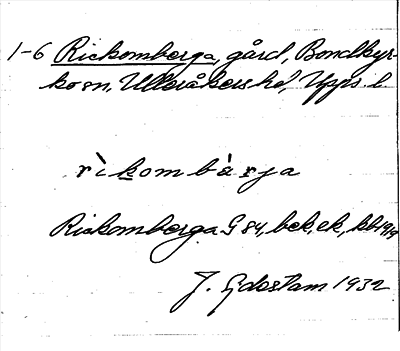 1-6 Rickomberga, gård, Bondkyr-
ko sn, Ulleråkers hd, Upps. l.
rìkombàrja
Rickomberga G 84, bek, ek, kb 1919
J. Gdostam 1932